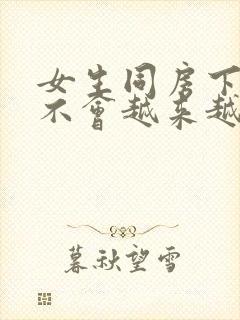 女生同房下
不會越来越
暮秋望雪